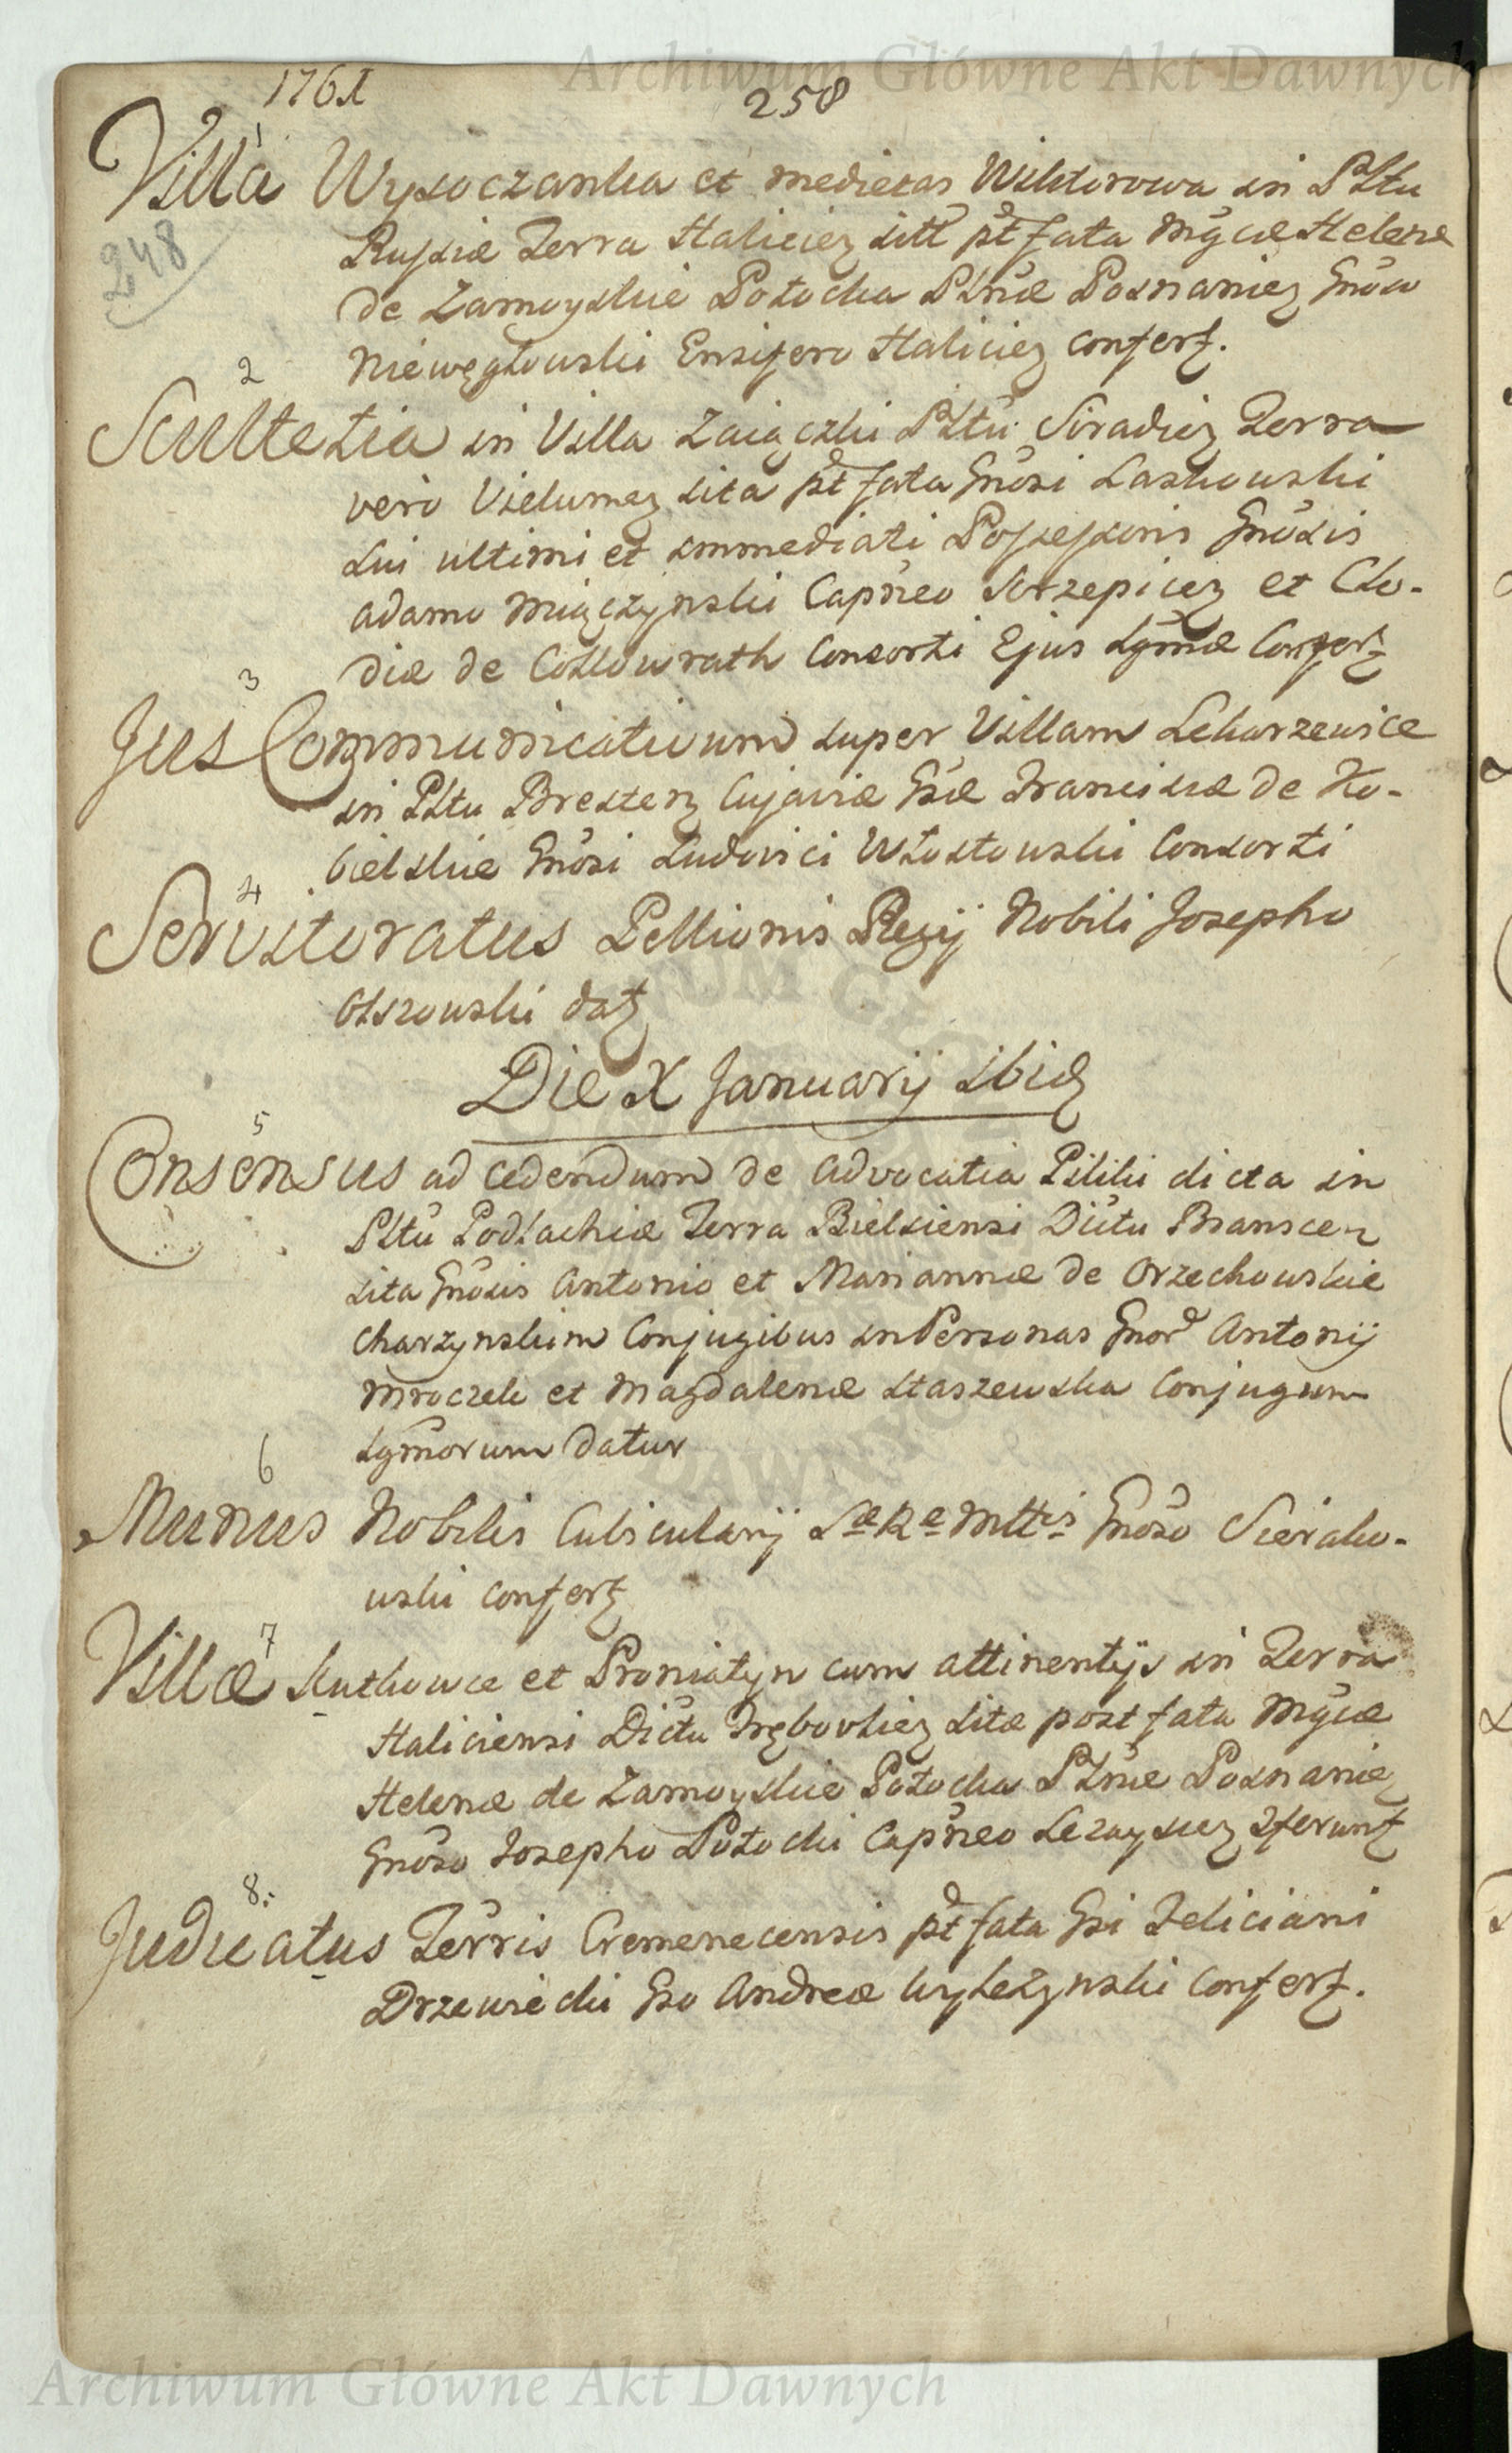 Archiwum Główne Akt Dawnych
1761
258
1
Villa Wysoczanka et medietas Wiktorowa in Pltu
248
Russiæ Terra Haliciez sitt pt fata Mgcæ Helenæ
de Zamoyskie Potocka Pltnæ Posnaniez Gnoso
Niewęgłowski Ensifero Haliciez confert.
2
Scultetia in Villa Zaiączki Pltu Siradiez Terra
vero Vielumez sita pt fata Gnosi Laskowski
sui ultimi et immediati Possessoris Gnosis
Adamo Miączynski Capneo Krzepicez et Clo-
diæ de Collowrath Consorti Ejus Lgmæ Confert
3
Jus Communicativum super Villam Lekarzewice
in Pltu Brestenz Cujaviæ Gsæ Franciscæ de Ko-
bielskie Gnosi Ludovici Włostowski Consorti
4
Servitoratus Pellionis Regij Nobili Josepho
Olszowski dat
Die X Januarij ibid
5
Consensus ad cedendum de Advocatia Piliki dicta in
Pltu Podlachiæ Terra Bielsiensi Dictu Branscen
sita Gnosis Antonio et Mariannæ de Orzechowskie
Charzynskim Conjugibus in Personas Gnor Antonij
Mroczek et Magdalenæ Staszewska Conjugum
Lgmorum datur
6
Munus Nobilis Cubicularij Sæ Ræ Mttis Gnoso Sierako-
wski confert
7
Villæ Kutkowce et Proniatyn cum attinentijs in Terra
Haliciensi Dictu Trębovliez sitæ post fata Mgcæ
Helenæ de Zamoyskie Potocka Pltnæ Posnaniez
Gnoso Josepho Potocki Capneo Lezayscez 2ferunt
8.
Judicatus Terris Cremenecensis pt fata Gsi Feliciani
Drzewiecki Gso Andreæ Wyleżynski Confert.
Archiwum Główne Akt Dawnych